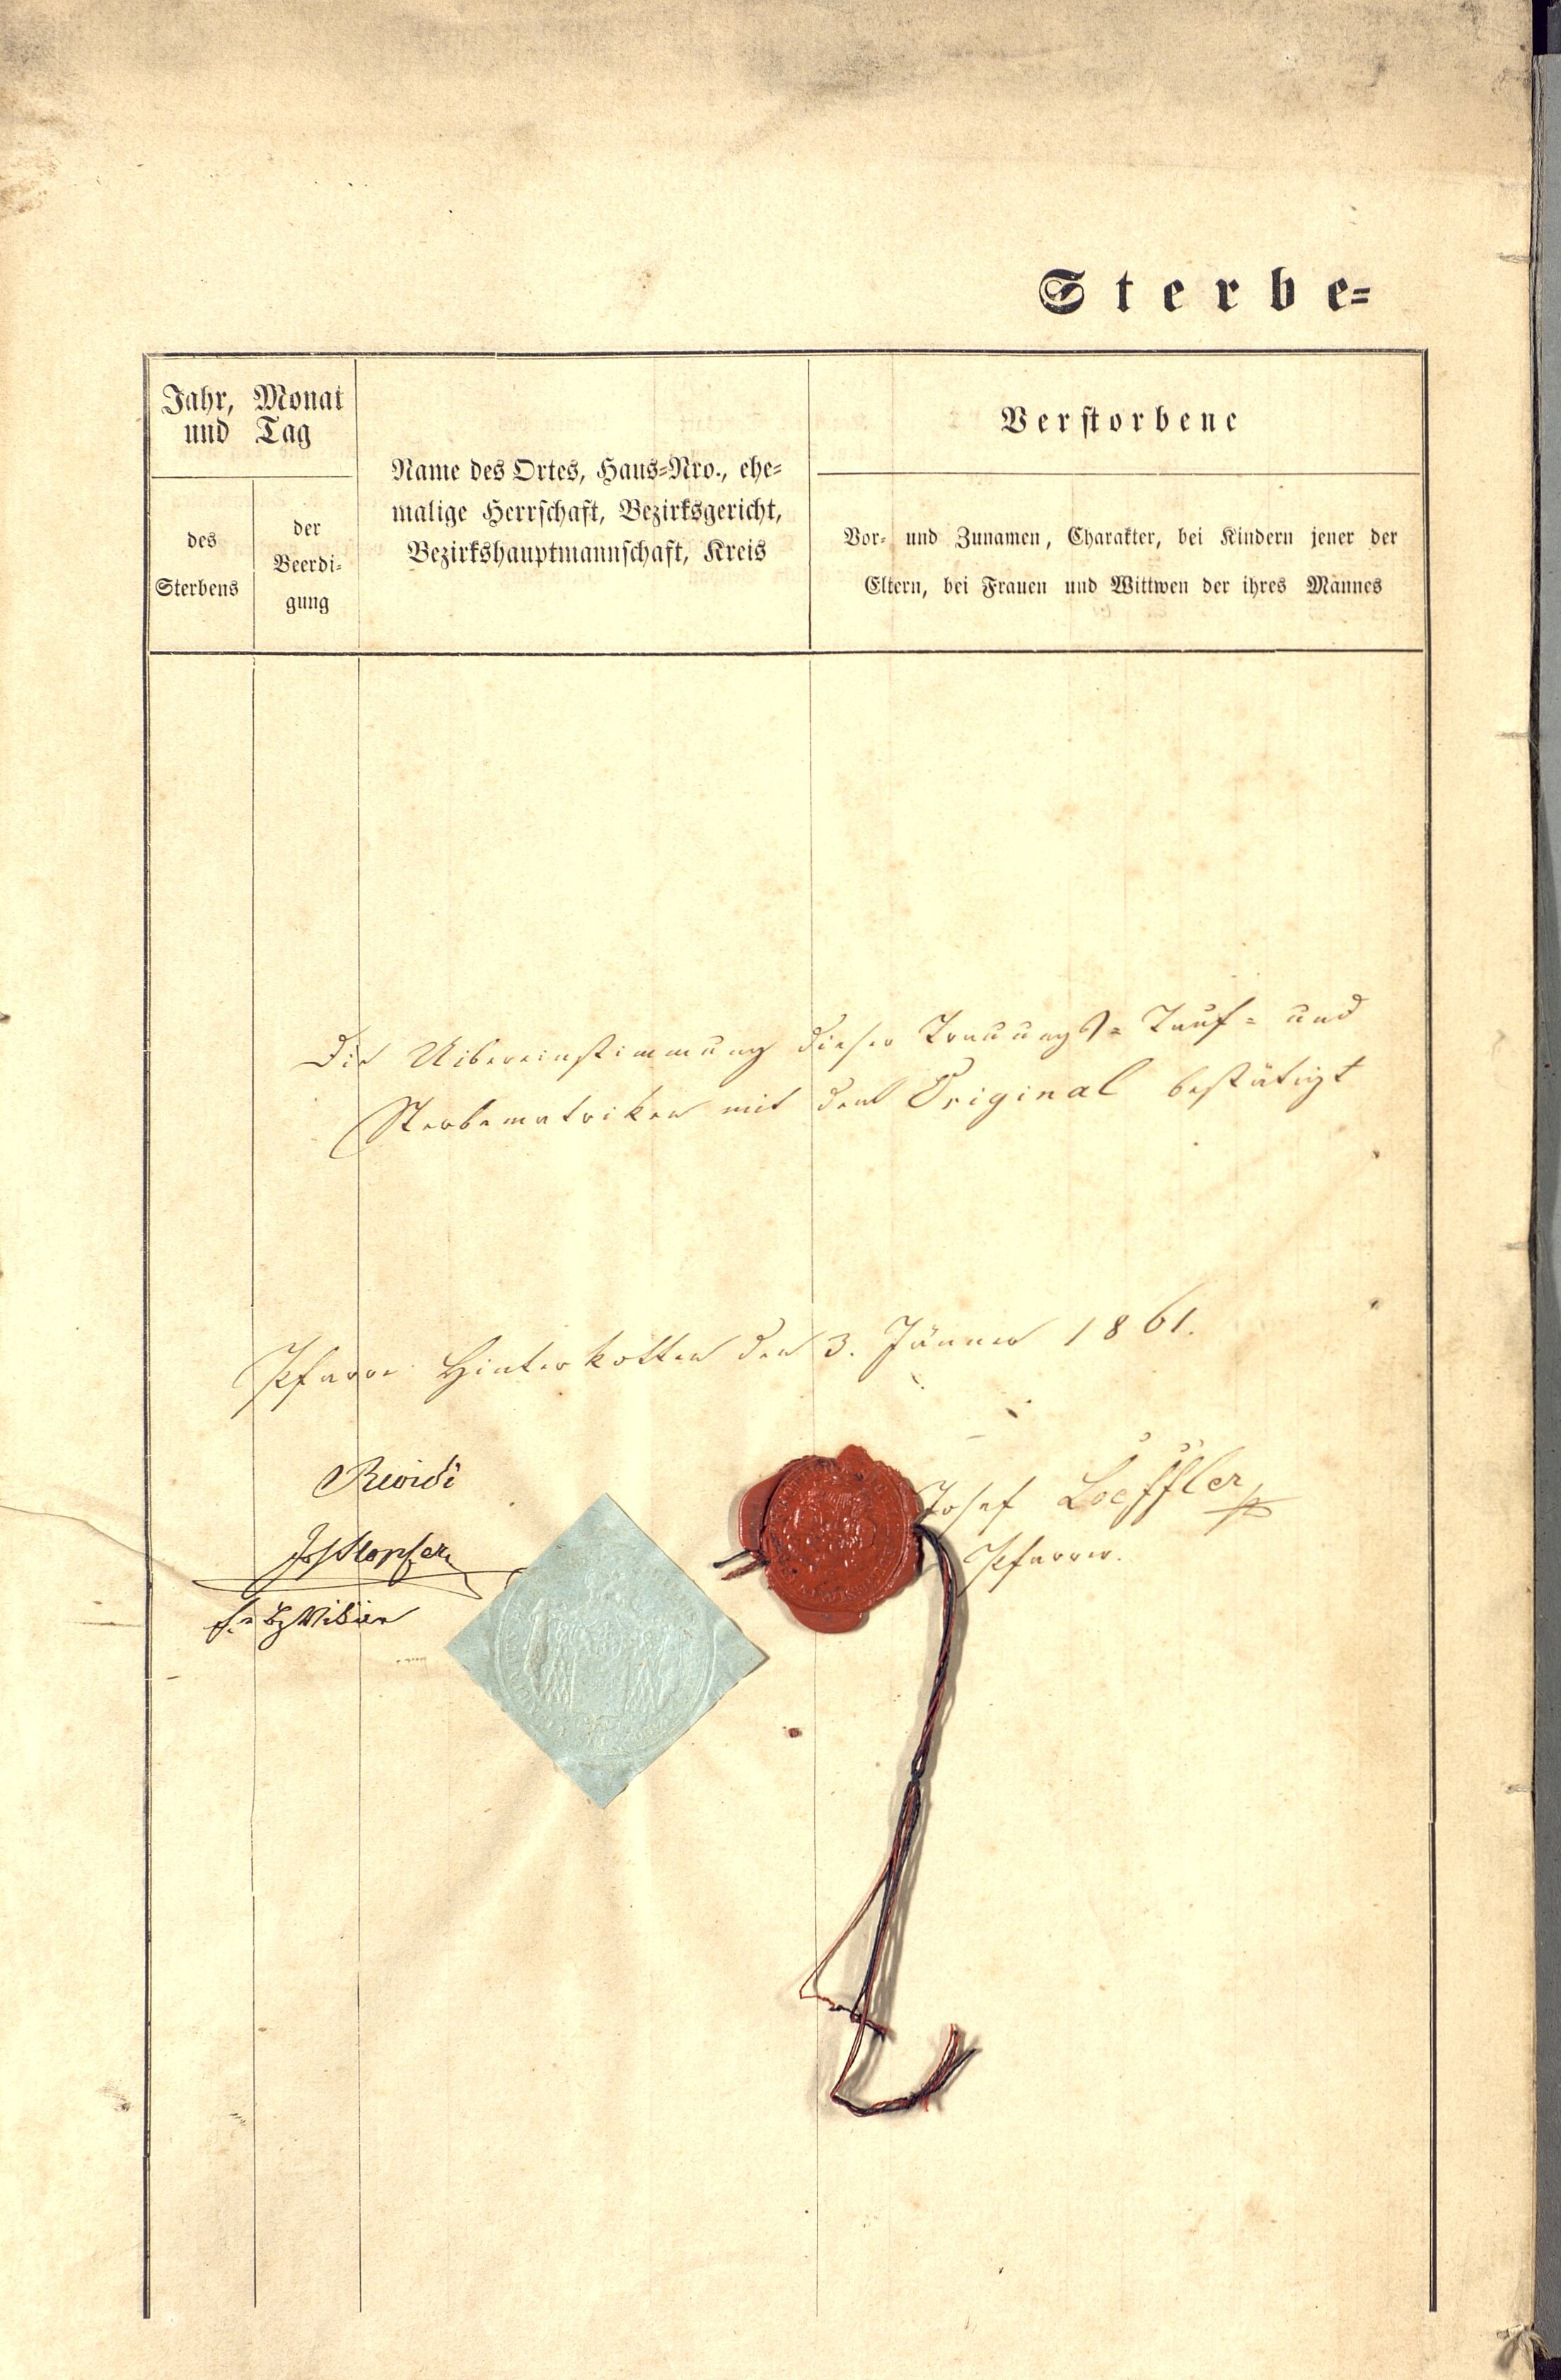 Sterbe=
Jahr, Monat
und Tag
des
Sterbens
der
Beerdi-
gung
Name des Ortes, Haus-Nro., ehe-
malige Herrschaft, Bezirksgericht,
Bezirkshauptmannschaft, Kreis
Verstorbene
Vor- und Zunamen, Charakter, bei Kindern jener der
Eltern, bei Frauen und Wittwen der ihres Mannes
Die Uibereinstimmung dieser Trauungs= Tauf= und
Sterbematriken mit dem Original bestätigt
Pfarre Hinterkotten den 3. Jänner 1861.
Josef Loeffler
Pfarrer.
Revidi